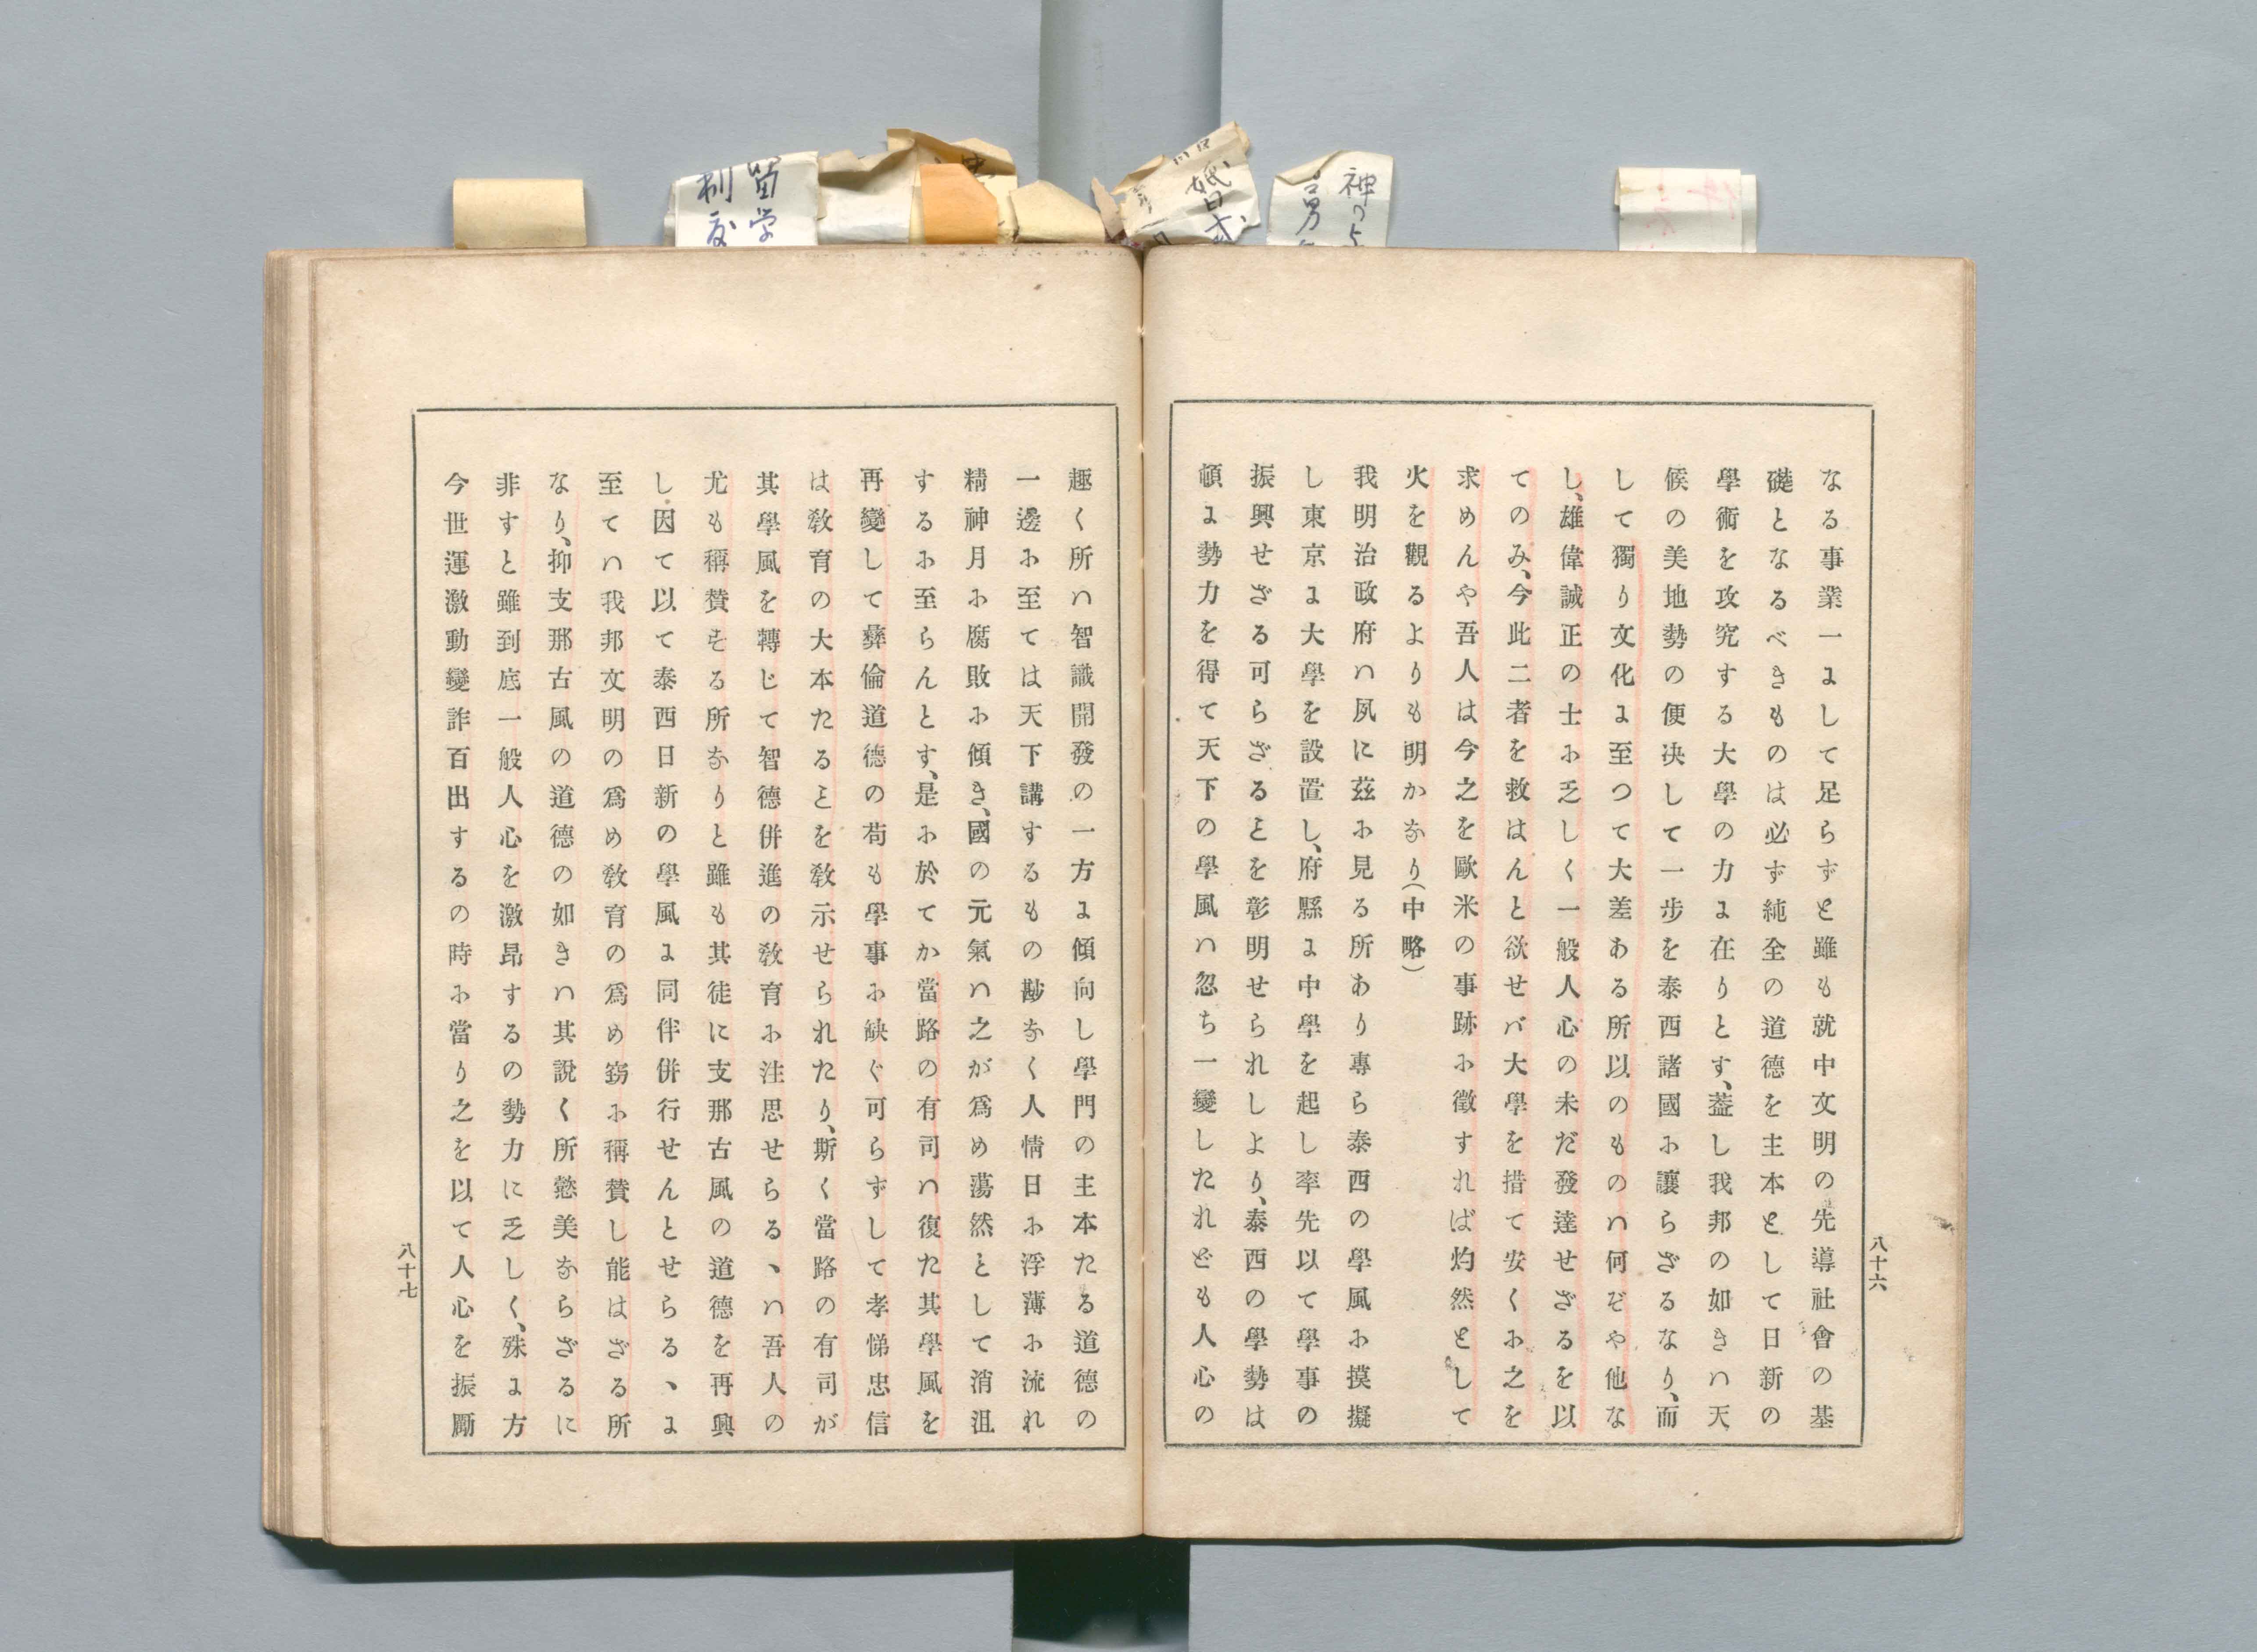 なる事業一にして足らずと雖も就中文明の先導社會の基
礎となるべきものは必ず純全の道德を主本として日新の
學術を攻究する大學の力に在りとす、蓋し我邦の如きハ天
候の美地勢の便决して一步を泰西諸國に讓らざるなり、而
して獨り文化に至つて大差ある所以のものハ何ぞや他な
し、雄偉誠正の士に乏しく一般人心の未だ發達せざるを以
てのみ、今此二者を救はんと欲せバ大學を措て安くに之を
求めんや吾人は今之を歐米の事跡に徵すれば灼然として
火を觀るよりも明かなり(中略)
我明治政府ハ夙に茲に見る所あり專ら泰西の學風に摸擬
し東京に大學を設置し、府縣に中學を起し率先以て學事の
振興せざる可らざるとを彰明せられしより、泰西の學勢は
頓に勢力を得て天下の學風ハ忽ち一變したれども人心の
八十六
趣く所ハ智識開發の一方に傾向し學門の主本たる道德の
一邊に至ては天下講するもの尠なく人情日に浮薄に流れ
精神月に腐敗に傾き、國の元氣ハ之が爲め蕩然として消沮
するに至らんとす、是に於てか當路の有司ハ復た其學風を
再變して彝倫道德の苟も學事に缺ぐ可らずして孝悌忠信
は敎育の大本たるとを敎示せられたり、斯く當路の有司が
其學風を轉じて智德併進の敎育に注思せらるゝハ吾人の
尤も稱賛する所なりと雖も其徒に支那古風の道德を再興
し因て以て泰西日新の學風に同伴併行せんとせらるゝに
至てハ我邦文明の爲め敎育の爲め竊に稱賛し能はざる所
なり、抑支那古風の道德の如きハ其說く所懿美ならざるに
非すと雖到底一般人心を激昂するの勢力に乏しく、殊に方
今世運激動變詐百出するの時に當り之を以て人心を振勵
八十七
留学
制度
婚式
神つよ